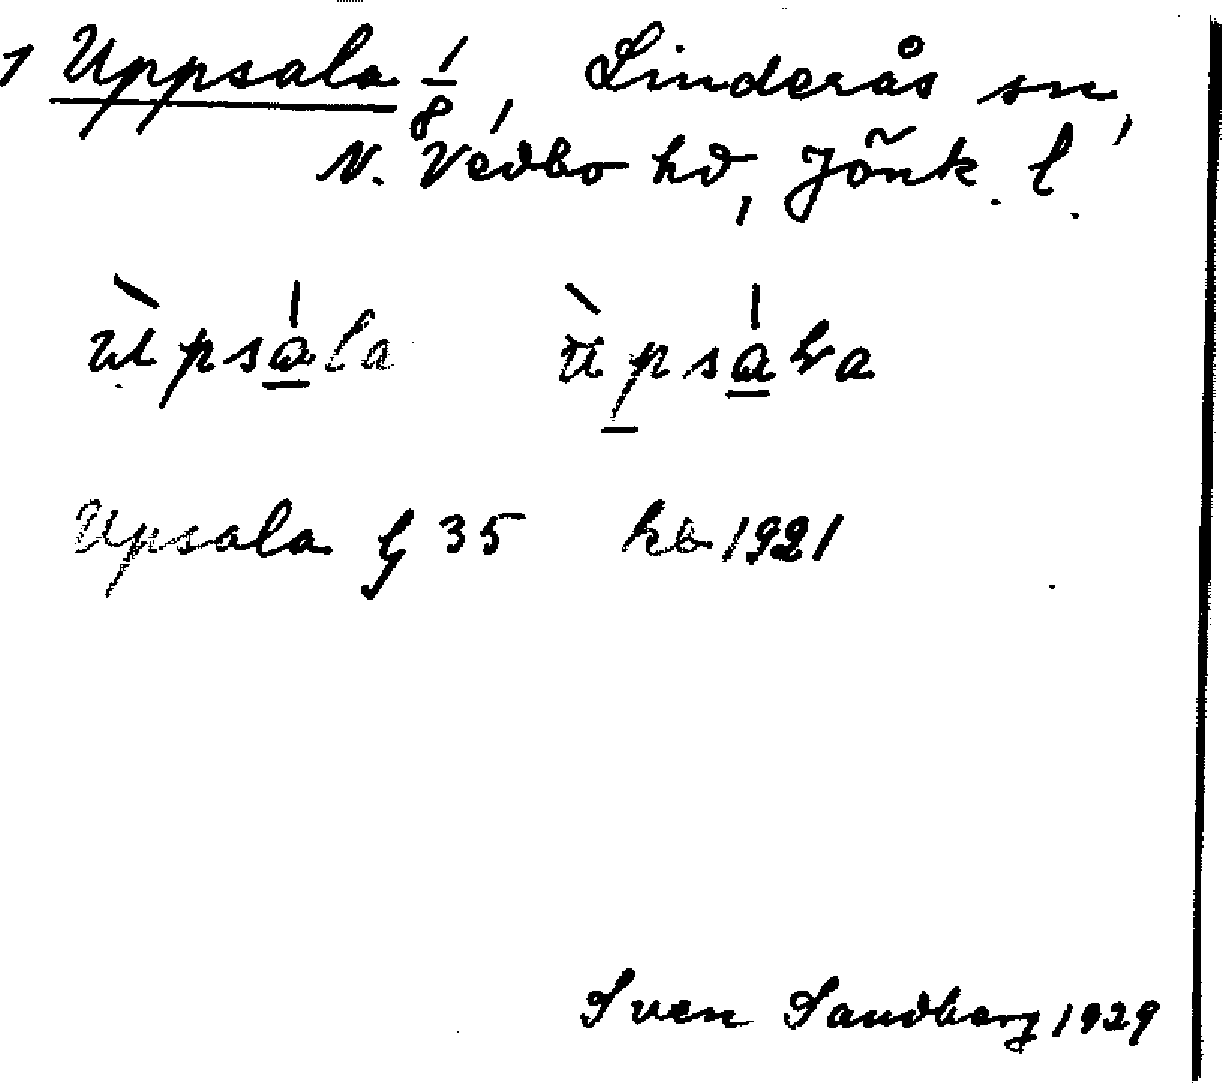 1 Uppsala 1/8, Linderås sn,
N. Vedbo hd, Jönk. l.
ùpsála ùpsáɫa
Upsala G 35 kb 1921
Sven Sandberg 1929